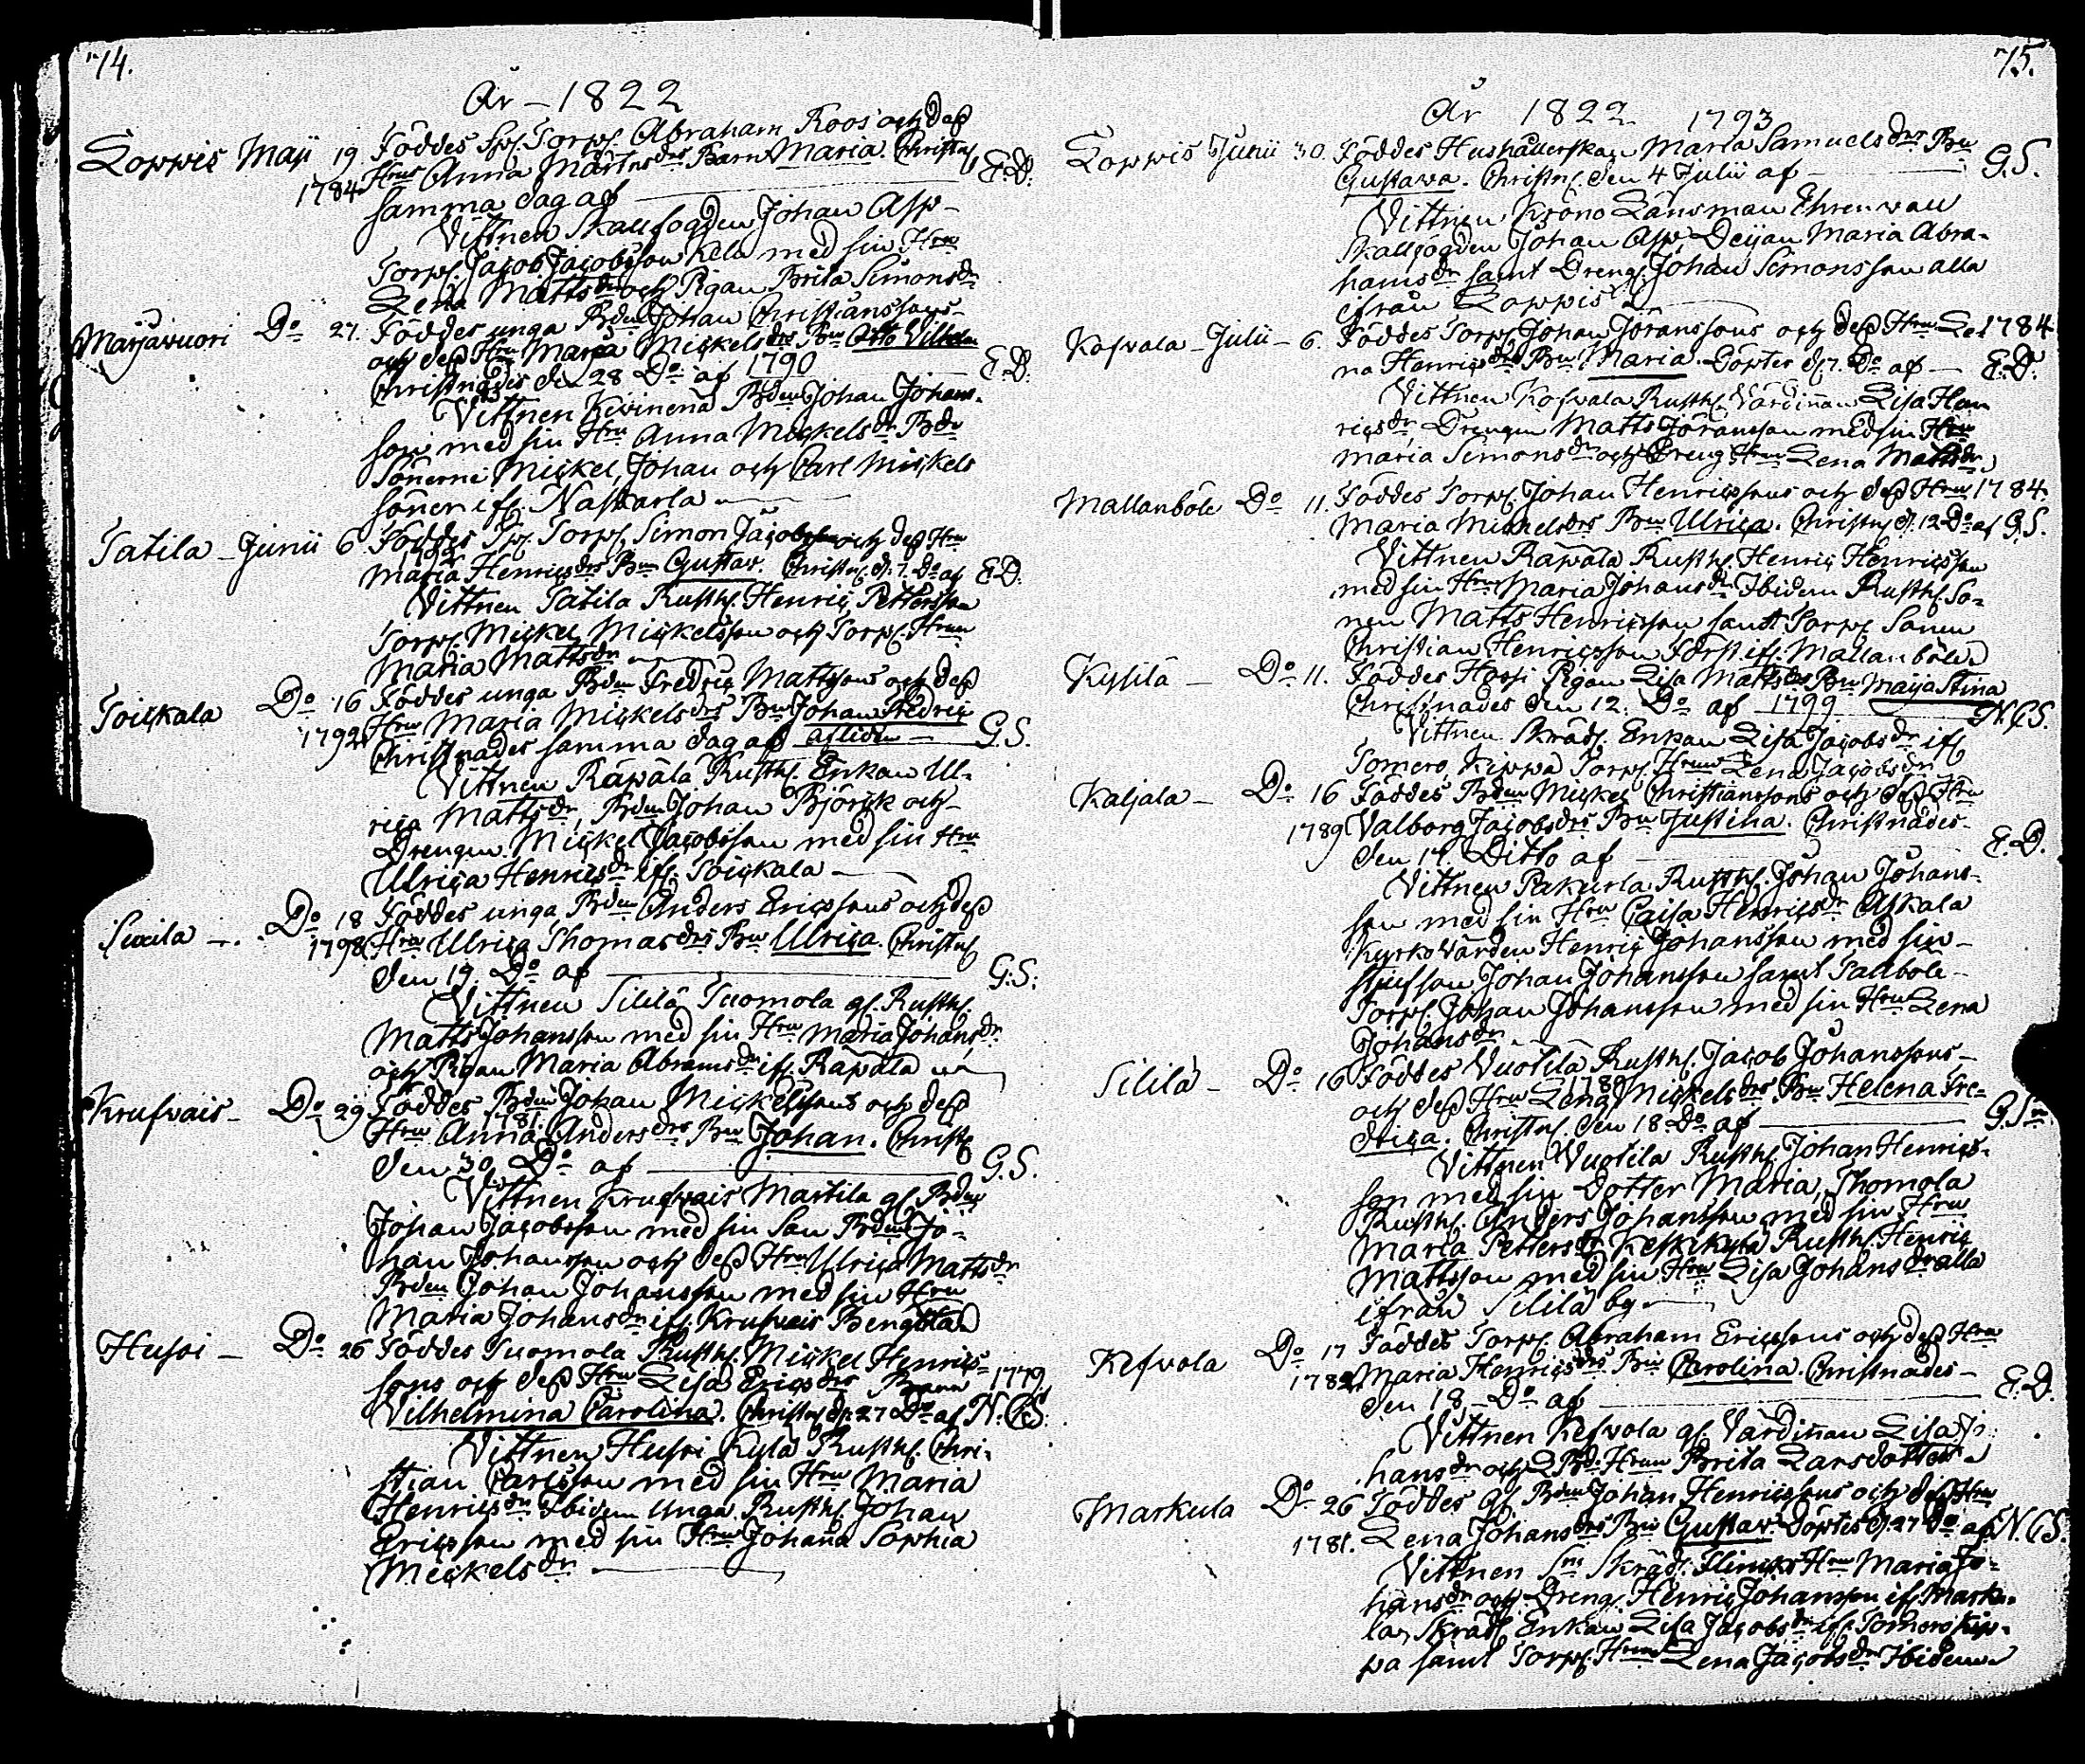 74.
År - 1822
Loppis Maji 19 Föddes Torp. Abraham Roos och deß
1784 Hru Anna Mårtensdrs Barn Maria. Christn. E.D.
samma dag af
Vittnen Skallfogden Johan Asp
Torp. Jacob Jacobsson Kela med sin Hru
Lena Mattsdr och Pigan Brita Simonsdr
Marjavuori Do 27. Föddes unga Bden Johan Christianssons
och deß Hru Maria Mickelsdrs Bn Otto Vilhelm
Christnades den 28 Do af 1790 E.D.
Vittnen Kivinena Bden Johan Johans-
son med sin Hru Anna Mickelsdr Bde
Sönerne Mickel, Johan och Carl Mickels
söner ifr. Naskarla
Tatila - Junii 6 Föddes Torp. Simon Jacobssons och deß Hru
Maria Henricsdrs Bn Gustav. Christn. d. 7. Do af E.D.
Vittnen Tatila Rusth. Henric Pettersson
Torp. Mickel Mickelsson och Torp. Hrun
Maria Mattsdr
Toickala Do 16 Föddes unga Bden Fredric Mattssons och deß
1792 Hru Maria Mickelsdrs Bn Johan Fredric
Christnades samma dag af afliden G.S.
Vittnen Räpälä Rusth. Enkan Ul-
rica Mattsdr, Bden Johan Björck och
Drengen Mickel Jacobsson med sin Hru
Ulrica Henricsdr ifr. Toickala
Do 18 Föddes unga Bden Anders Ericssons och deß
1798 Hru Ulrica Thomasdrs Bn Ulrica. Christn.
den 19. Do af G.S.
Vittnen Sililä Tuomola gl. Rusth.
Matts Johansson med sin Hru Maria Johansdr
och Pigan Maria Abramsdr ifr. Räpälä
Krusvais - Do 29 Föddes Bden Johan Mickelssons och deß
1781.
Hru Anna Andersdrs Bn Johan. Christn.
den 30 Do af G.S.
Vittnen Krusvais Martila gl. Bden
Johan Jacobsson med sin Son Bden Jo-
han Johansson och deß Hru Ulrica Mattsdr
Bden Johan Johansson med sin Hru
Maria Johansdr ifr. Krusvais Bengtla
Do 26 Föddes Tuomola Rusth. Mickel Henrics-
sons och deß Hru Lisa Ericsdrs Barn 1779
Vilhelmina Carolina. Christn. d. 27 Do af N.GS.
Vittnen Kylä Rusth. Chri-
stian Carlsson med sin Hru Maria
Henricsdr Ibidem Unga Rusth. Johan
Ericsson med sin Hru Johana Sophia
Mickelsdr
75.
År 1822 1793
Loppis Junii 30. Föddes Hushållerskan Maria Samuelsdrs Bn
Gustava. Christn. den 4 Julii af G.S.
Vittnen Krono Länsman Ehrenwall
Skallfogden Johan Asp, Deijan Maria Abra-
hamsdr samt Dreng. Johan Simonsson alla
ifrån Loppis
Kofvala - Julii - 6. Föddes Torp. Johan Jöranssons och deß Hru Le 1784
na Henricsdrs Bn Maria. Döptes d. 7. Do af E.D.
Vittnen Kofvala Rusth. Värdinnan Lisa Hen
ricsdr, Drengen Matts Jöransson med sin Hru
Maria Simonsdr och Dreng Hrun Lena Mattsdr
Mallanböle Do 11. Föddes Torp. Johan Henricssons och deß Hru 1784.
Maria Mickelsdrs Bn Ulrica. Christn. d. 12 Do af G.S.
Vittnen Räpälä Rusth. Henric Henricsson
med sin Hru Maria Johansdr Ibidem Rusth. So-
nen Matts Henricsson samt Torp. Sonen
Christian Henricsson ifr. Mallanböle
Do 11. Föddes Pigan Lisa Mattsdrs Bn Maija Stina
Christnades den 12. Do af 1799 N.GS.
Vittnen Skräd. Enkan Lisa Jacobsdr ifr
Somero, Kippa Torp. Hrun Lena Jacobsdr
Kaljala - Do 16 Föddes Bden Mickel Christianssons och deß Hru
1789 Valborg Jacobsdrs Bn Justina. Christnades
den 17. Ditto af E.D.
Vittnen Pakurla Rusth. Johan Johans-
son med sin Hru Caisa Henricsdr Askala
Kyrkovärden Henric Johansson med sin
stjufson Johan Johansson samt Tallbole
Torp. Johan Johansson med sin Hru Lena
Johansdr
Sililä - Do 16 Föddes Vuotila Rusth. Jacob Johanssons
och deß Hru Lena 1789 Mickelsdrs Bn Helena Fre-
drica. Christn. den 18. Do af G.Sn
Vittnen Vuotila Rusth. Johan Henrics-
son med sin dotter Maria, Thomola
Rusth. Anders Johansson med sin Hru
Maria Pettersdr, Keskikylä Rusth. Henric
Mattsson med sin Hru Lisa Johansdr alla
ifrån Sililä by
Kefvola Do 17 Föddes Torp. Abraham Ericssons och deß Hru
1782 Maria Henricsdrs Bn Carolina. Christnades
den 18 - Do af E.D.
Vittnen Kefvola gl. Värdinnan Lisa Jo
hansdr och Bd. Hrun Brita Larsdotter
Markula Do 26 Föddes gl. Bden Johan Henricssons och deß Hru
1781. Lena Johansdrs Bn Gustav. Döptes d. 27 Do af N.GS.
Vittnen Skräd. Flincks Hru Maria Jo-
hansdr och Dreng. Henric Johansson ifr. Marku-
la, Skräd. Enkan Lisa Jacobsdr ifr. Somero Kip-
pa samt Torp. Hrun Lena Jacobsdr Ibidem